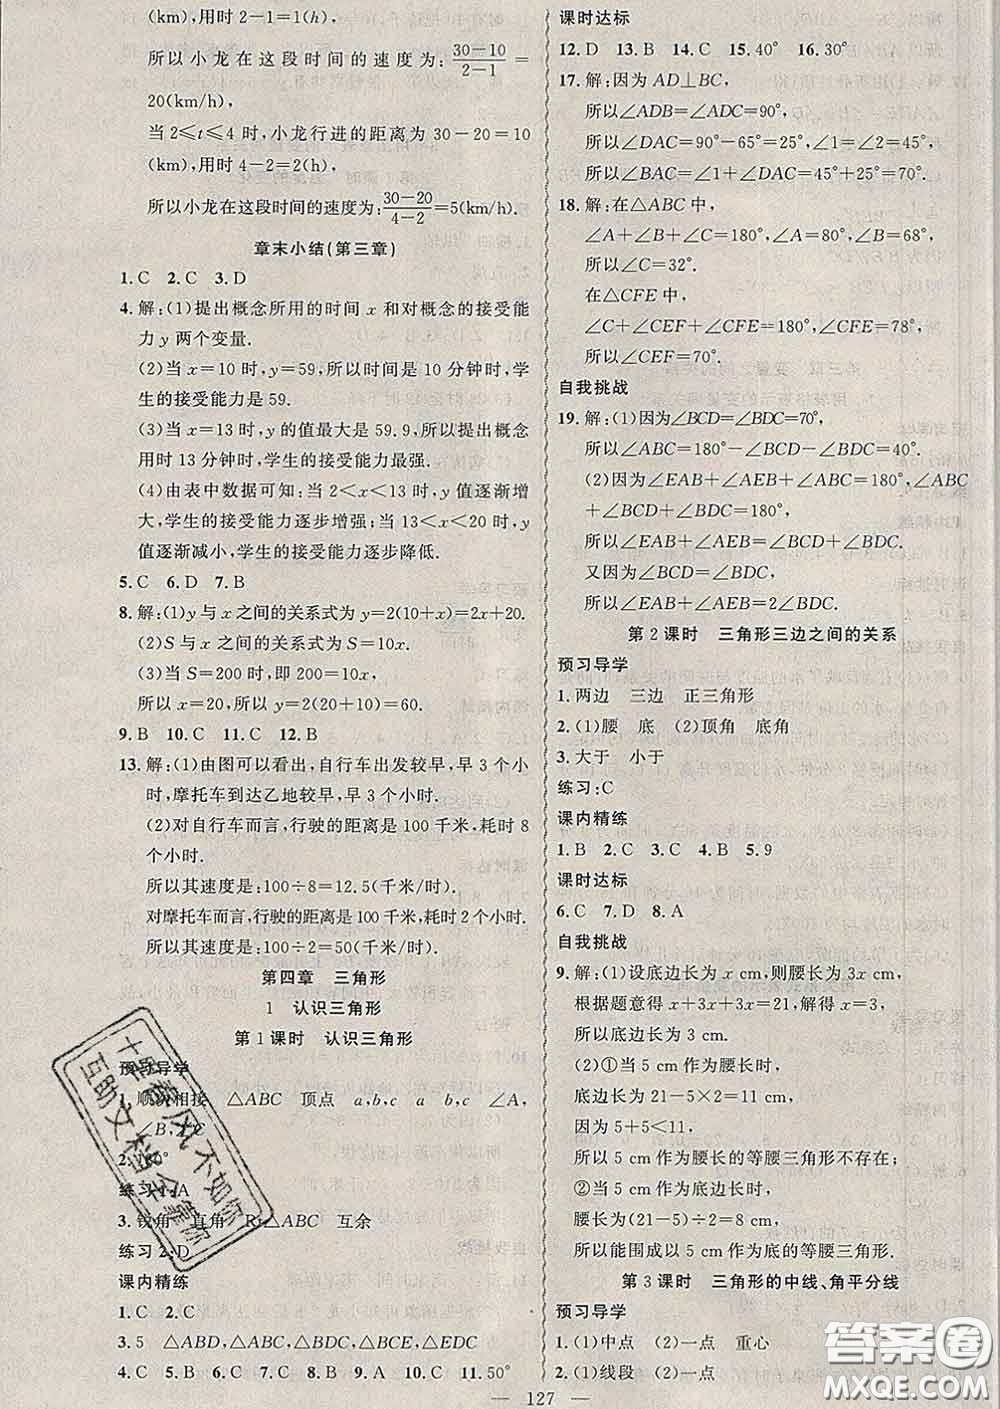 (km),用时2-1=1(h),
所以小龙在这段时间的速度为:30-10/2-1=
20(km/h),
当2≤t≤4时,小龙行进的距离为30-20=10
(km),用时4-2=2(h),
所以小龙在这段时间的速度为:30-20/4-2=5(km/h).
章末小结(第三章)
1.C 2.C 3.D
4.解:(1)提出概念所用的时间x和对概念的接受能
力y两个变量.
(2)当x=10时,y=59,所以时间是10分钟时,学
生的接受能力是59.
(3)当x=13时,y的值最大是59.9,所以提出概念
用时13分钟时,学生的接受能力最强.
(4)由表中数据可知:当2<x<13时,y值逐渐增
大,学生的接受能力逐步增强;当13<x<20时,y
值逐渐减小,学生的接受能力逐步降低.
5.C 6.D 7.B
8.解:(1)y与x之间的关系式为y=2(10+x)=2x+20.
(2)S与x之间的关系式为S=10x.
(3)当S=200时,即200=10x.
所以x=20,所以y=2(10+x)=60.
9.B 10.C 11.C 12.B
13.解:(1)由图可以看出,自行车出发较早,早3个小
时,摩托车到达乙地较早,早3个小时.
(2)对自行车而言,行驶的距离是100千米,耗时8
个小时.
所以其速度是:100÷8=12.5(千米/时).
对摩托车而言,行驶的距离是100千米,耗时2个小时.
所以其速度是:100÷2=50(千米/时).
第四章 三角形
1 认识三角形
第1课时 认识三角形
预习导学
1.顺次相接 △ABC 顶点 a,b,c a b,c ∠A,
∠B,∠C
2.180°
练习1:A
3.锐角 直角 Rt△ABC 互余
练习2:D
课内精练
1.C 2.C
3.5 △ABD,△ABC,△BDC,△BCE,△EDC
4.C 5.C 6.B 7.C 8.C 9.C 10.C 11.50°
课时达标
12.D 13.B 14.C 15.40° 16.30°
17.解:因为AD⊥BC,
所以∠ADB=∠ADC=90°,
所以∠DAC=90°-65°=25°,∠1=∠2=45°,
所以∠BAC=∠1+∠DAC=45°+25°=70°.
18.解:在△ABC中,
∠A+∠B+∠C=180°,∠A=80°,∠B=68°,
所以∠C=32°.
在△CFE中,
∠C+∠CEF+∠CFE=180°,∠CFE=78°,
所以∠CEF=70°.
自我挑战
19.解:(1)因为∠BCD=∠BDC=70°,
所以∠ABC=180°-∠BCD-∠BDC=40°.
(2)因为∠EAB+∠AEB+∠ABC=180°,∠ABC
+∠BCD+∠BDC=180°,
所以∠EAB+∠AEB=∠BCD+∠BDC.
又因为∠BCD=∠BDC,
所以∠EAB+∠AEB=2∠BDC.
第2课时 三角形三边之间的关系
预习导学
1.两边 三边 正三角形
2.(1)腰 底 (2)顶角 底角
3.大于 小于
练习:C
课内精练
1.B 2.C 3.C 4.B 5.9
课时达标
6.C 7.D 8.A
自我挑战
9.解:(1)设底边长为x cm,则腰长为3x cm,
根据题意得x+3x+3x=21,解得x=3.
所以底边长为3 cm.
(2)①当5 cm作为腰长时,
底边长为21-5×2=11,
因为5+5<11,
所以所以5 cm作为腰长的等腰三角形不存在;
②当5 cm作为底边长时,
腰长为(21-5)÷2=8(cm),
所以能围成以5 cm作为底的等腰三角形.
第3课时 三角形的中线、角平分线
预习导学
1.(1)中点 (2)一点 重心
2.(1)线段 (2)一点
— 127 —
十里春风不如你
互助文档全靠你
答案圈
MXQE.COM